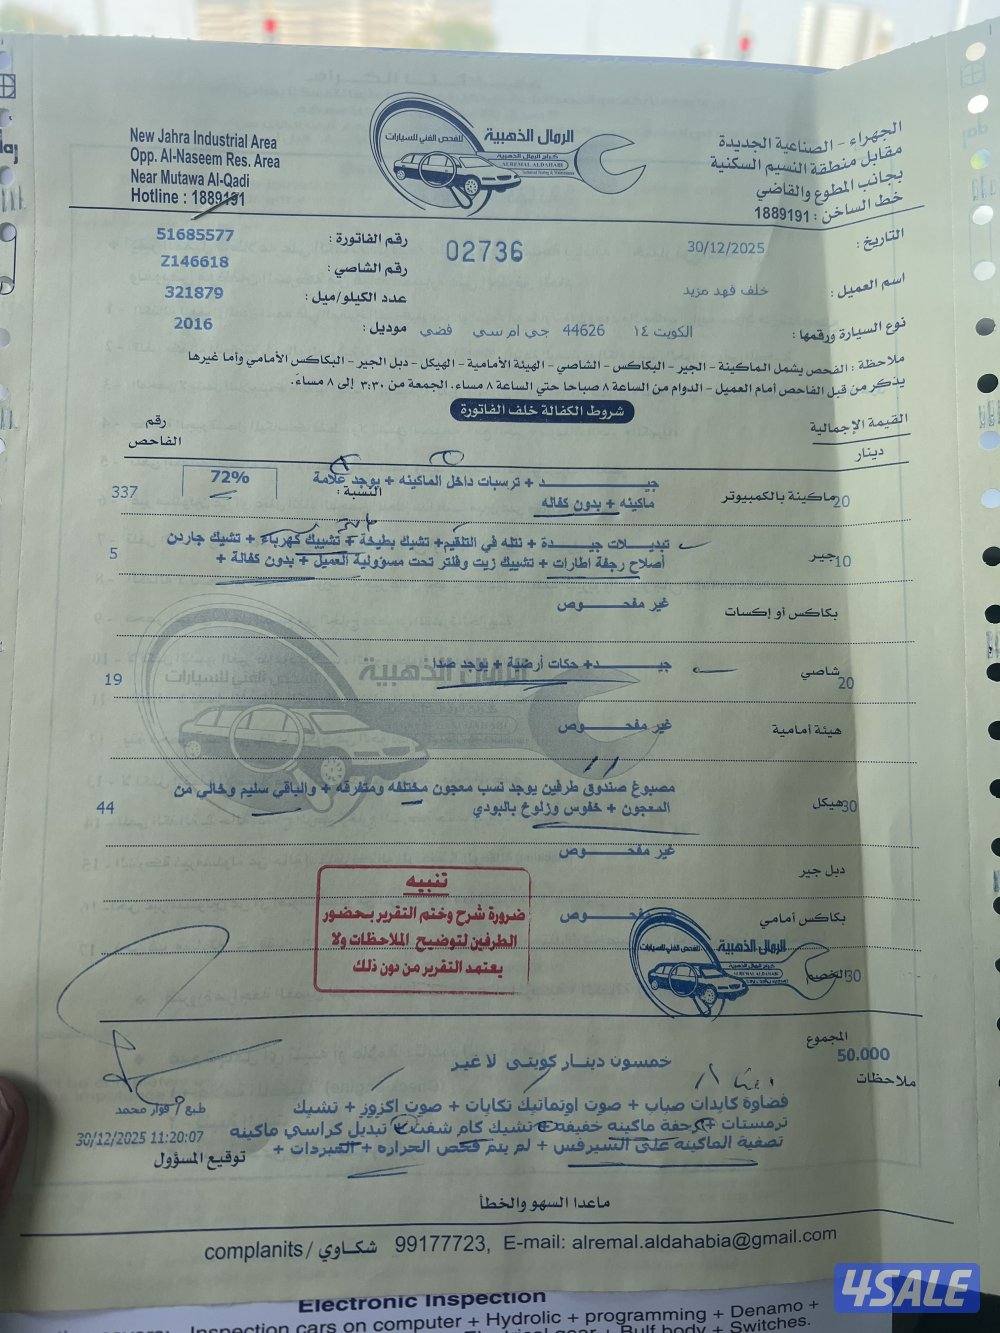 New Jahra Industrial Area
Opp. Al-Naseem Res. Area
Near Mutawa Al-Qadi
Hotline : 1889191
الرمال الذهبية
للفحص الفني للسيارات
كراج الرمال الذهبية
ALREMAL ALDAHABI
Technical Testing & Maintenance
الجهراء - الصناعية الجديدة
مقابل منطقة النسيم السكنية
بجانب المطوع والقاضي
خط الساخن : 1889191
التاريخ : 30/12/2025
02736
رقم الفاتورة : 51685577
رقم الشاصي : Z146618
اسم العميل : خلف فهد مزيد
عدد الكيلو/ميل : 321879
نوع السيارة ورقمها : الكويت ١٤ 44626 جي ام سي فضي
موديل : 2016
ملاحظة : الفحص يشمل الماكينة - الجير - البكاكس - الشاصي - الهيئة الأمامية - الهيكل - دبل الجير - البكاكس الأمامي وأما غيرها
يذكر من قبل الفاحص أمام العميل - الدوام من الساعة ٨ صباحا حتي الساعة ٨ مساء، الجمعة من ٣:٣٠ إلى ٨ مساءً.
شروط الكفالة خلف الفاتورة
القيمة الإجمالية
دينار
رقم
الفاحص
20 ماكينة بالكمبيوتر
جيـــــد + ترسبات داخل الماكينه + يوجد علامة
ماكينه + بدون كفاله
النسبة : 72%
337
10 جير
تبديـلات جيـــدة + نتله في التلقيم+ تشيك بطيخة + تشييك كهرباء + تشيك جاردن
أصلاح رجفة اطارات + تشييك زيت وفلتر تحت مسؤولية العميل + بدون كفالة +
5
بكاكس أو إكسات
غير مفحــــوص
20 شاصي
جيـــــد+ حكات أرضية + يوجد صدا
19
هيئة أمامية
غير مفحــــوص
30 هيكل
مصبوغ صندوق طرفين يوجد نسب معجون مختلفه ومتفرقه + والباقي سليم وخالي من
المعجون + خفوس وزلوخ بالبودي
44
دبل جير
غير مفحــــوص
بكاكس أمامي
غير مفحــــوص
تنبيه
ضرورة شرح وختم التقرير بحضور
الطرفين لتوضيح الملاحظات ولا
يعتمد التقرير من دون ذلك
الرمال الذهبية
للفحص الفني للسيارات
كراج الرمال الذهبية
ALREMAL ALDAHABI
30 الخصم
المجموع
50.000
خمسون دينار كويتى لا غير
ملاحظات
فضاوة كابدات صباب + صوت اوتماتيك تكايات + صوت اكزوز + تشيك
ترمستات + رجفة ماكينه خفيفه + تشيك كام شفت + تبديل كراسي ماكينه
تصفية الماكينه على السيرفس + لم يتم فحص الحراره + المبردات +
طبع / فواز محمد
30/12/2025 11:20:07
توقيع المسؤول
ماعدا السهو والخطأ
complanits / شكاوي 99177723, E-mail: alremal.aldahabia@gmail.com
Electronic Inspection
Inspection cars on computer + Hydrolic + programming + Denamo +
gear + Bulf body + Switches.
4SALE